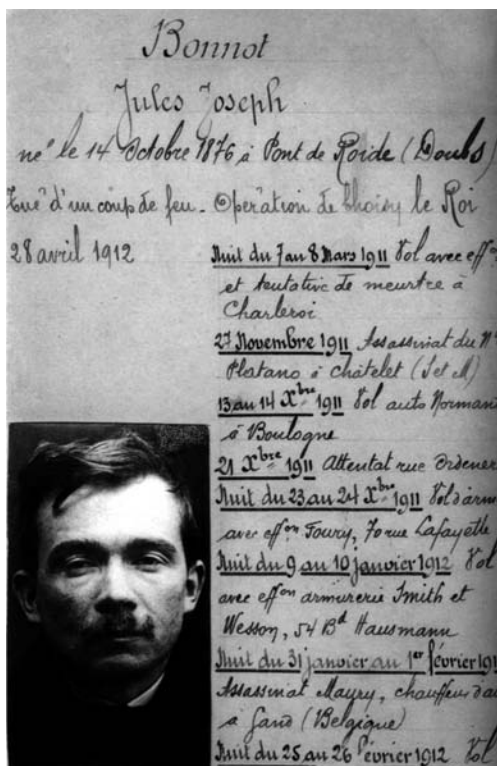 Bonnot
Jules Joseph
né le 14 Octobre 1876 à Pont de Roide (Doubs)
Tué d'un coup de feu - Opération de Choisy le Roi
28 avril 1912
Nuit du 7 au 8 Mars 1911 Vol avec effon
et tentative de meurtre à
Charleroi
27 Novembre 1911 Assassinat du
Platano à Châtelet (S et M)
13 au 14 Xbre 1911 Vol auto Norman
à Boulogne
21 Xbre 1911 Attentat rue Ordener
Nuit du 23 au 24 Xbre 1911 Vol d'arm
avec effon Foury, 70 rue Lafayette
Nuit du 9 au 10 janvier 1912 Vol
avec effon armurerie Smith et
Wesson, 54 Bd Hausmann
Nuit du 31 janvier au 1er février 191
Assassinat Mayry, chauffeur d'au
à Gand (Belgique)
Nuit du 25 au 26 février 1912 Vol